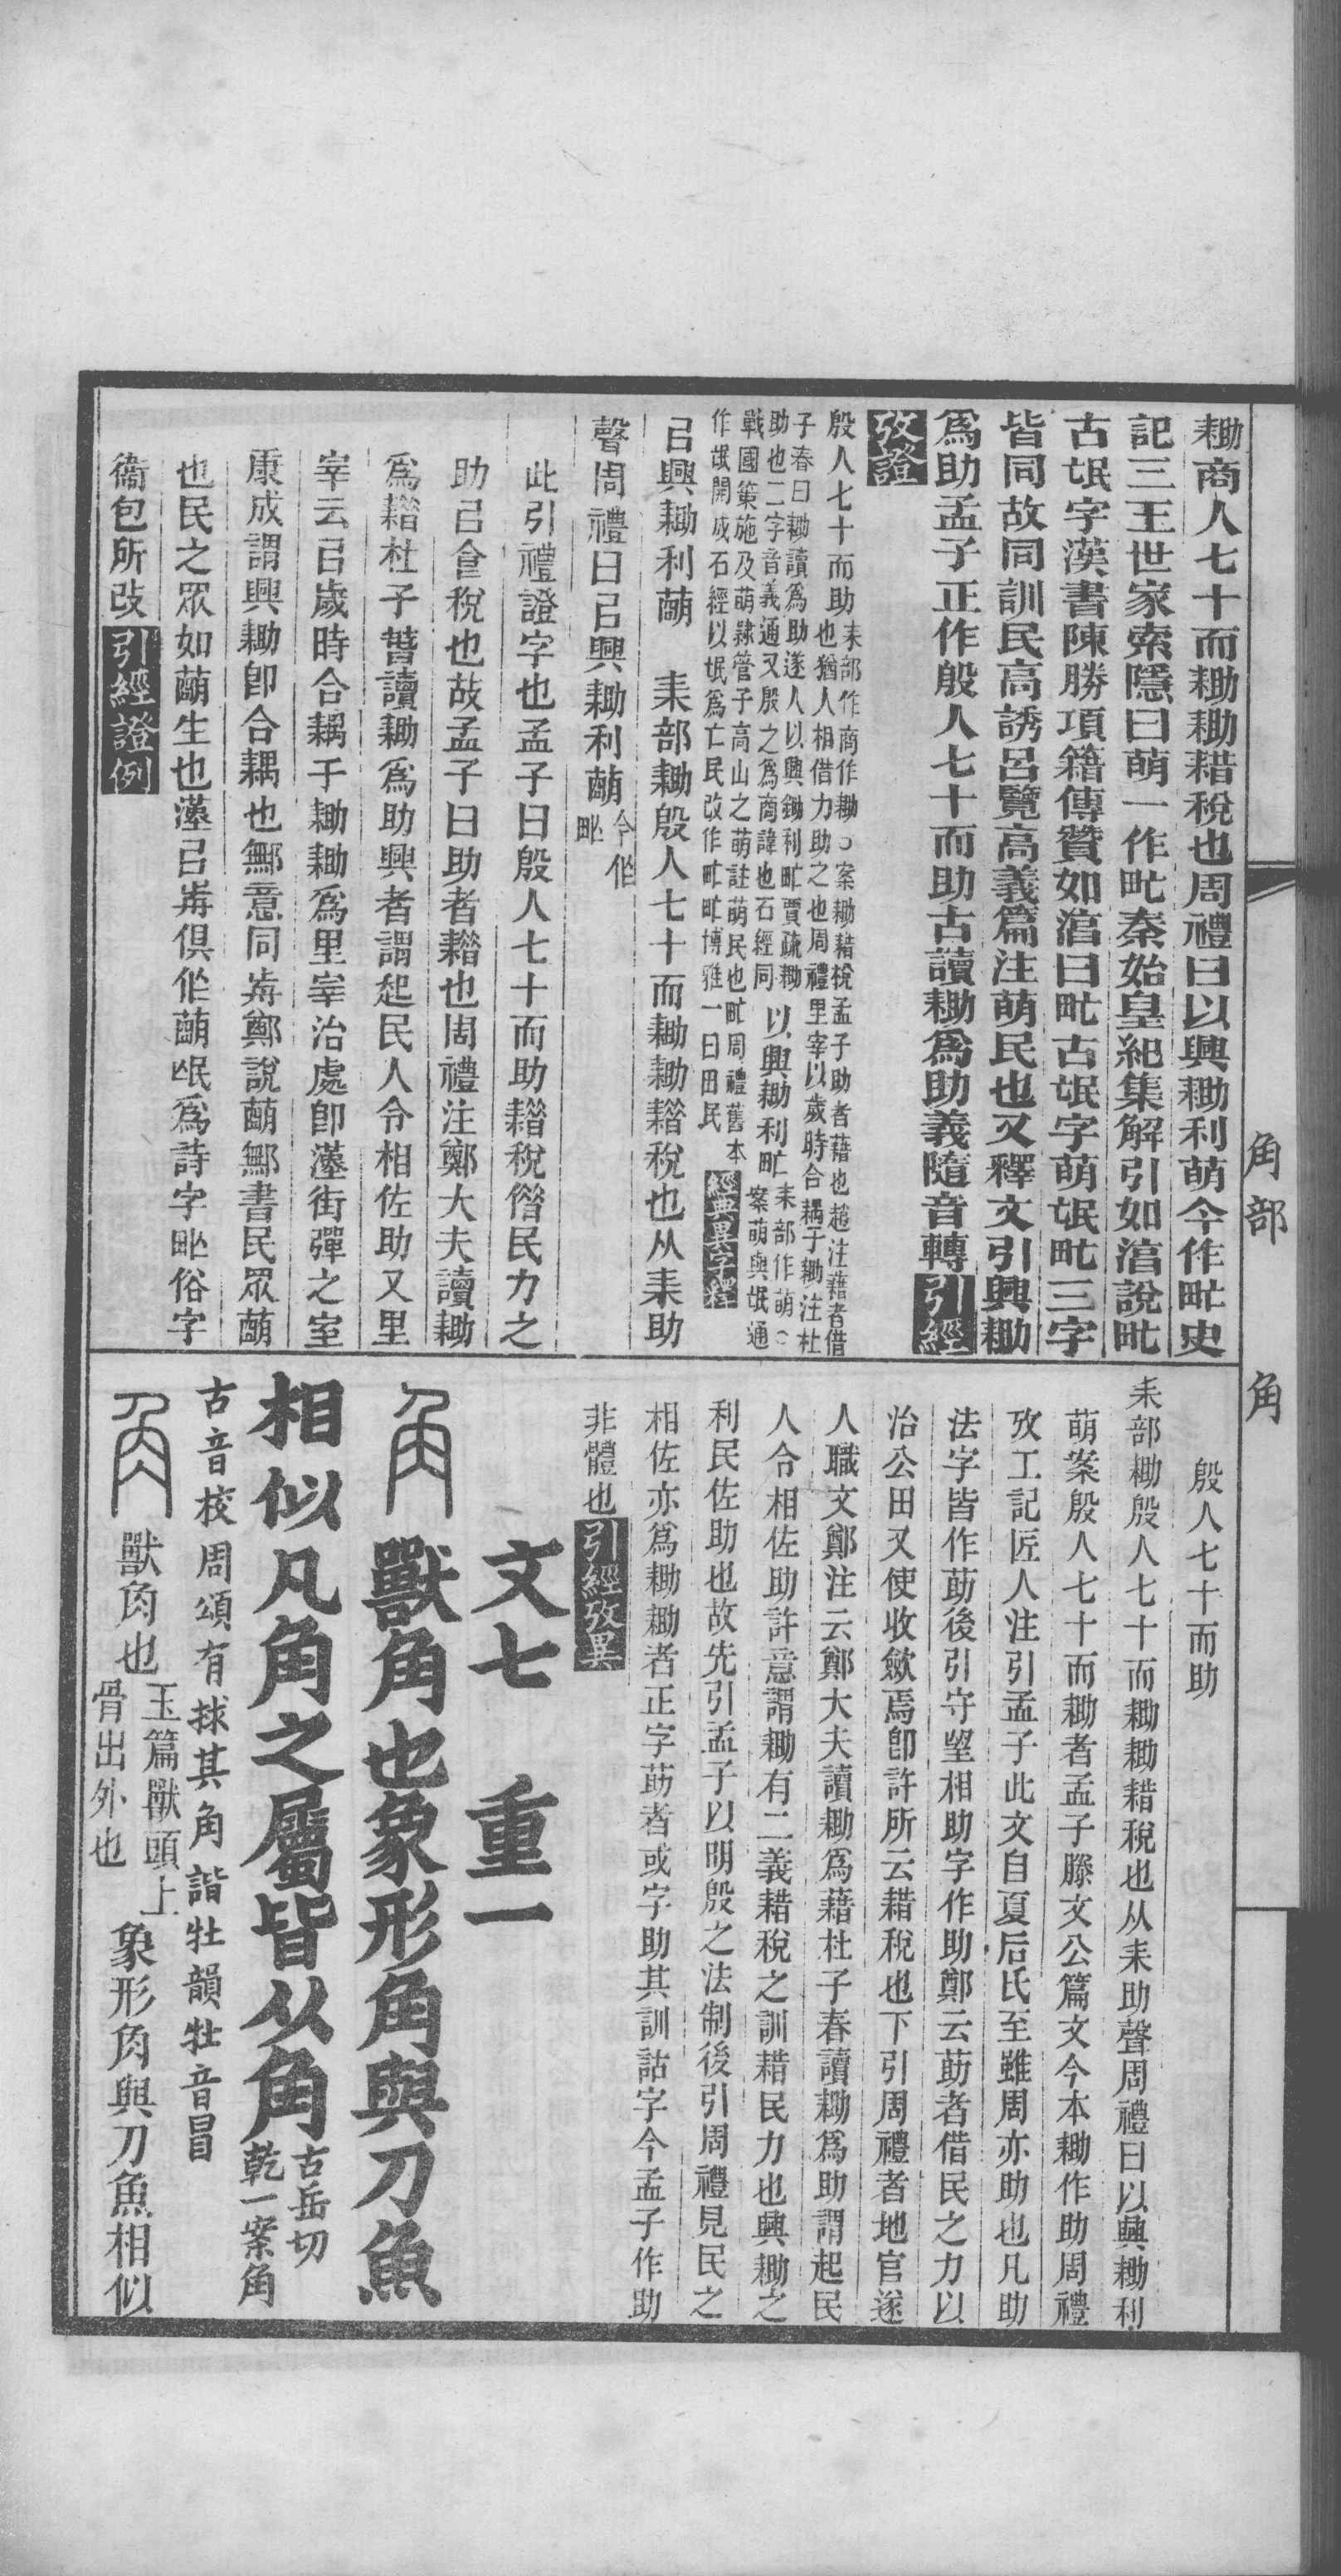 耡商人七十而耡耡耤稅也周禮曰以興耡利萌今作甿史
記三王世家索隱曰萌一作甿秦始皇紀集解引如淳說甿
古氓字漢書陳勝項籍傳贊如淳曰甿古氓字萌氓甿三字
皆同故同訓民高誘呂覽高義篇注萌民也又釋文引興耡
爲助孟子正作殷人七十而助古讀耡爲助義隨音轉引經
攷證
殷人七十而助
耒部作商作耡○案耡耤稅孟子助者藉也趙注藉者借
也猶人相借力助之也周禮里宰以歲時合耦于耡注杜
子春曰耡讀爲助遂人以興鋤利甿賈疏耡
助也二字音義通又殷之爲商諱也石經同
以興耡利甿
耒部作萌○
案萌與氓通
戰國策施及萌隸管子高山之萌註萌民也甿周禮舊本
作氓開成石經以氓爲亡民改作甿甿博雅一曰田民
經典異字釋
㠯興耡利萠　耒部耡殷人七十而耡耡耤稅也从耒助
聲周禮曰㠯興耡利萠
今作
甿
此引禮證字也孟子曰殷人七十而助耤稅借民力之
助㠯食稅也故孟子曰助者耤也周禮注鄭大夫讀耡
爲耤杜子春讀耡爲助興者謂起民人令相佐助又里
宰云㠯歲時合耦于耡耡爲里宰治處卽漢街彈之室
康成謂興耡卽合耦也鄦意同歬鄭說萠鄦書民眾萠
也民之眾如萠生也漢㠯歬俱作萠氓爲詩字甿俗字
衞包所改引經證例
殷人七十而助
耒部耡殷人七十而耡耡耤稅也从耒助聲周禮曰以興耡利
萌案殷人七十而耡者孟子滕文公篇文今本耡作助周禮
攷工記匠人注引孟子此文自夏后氏至雖周亦助也凡助
法字皆作莇後引守望相助字作助鄭云莇者借民之力以
治公田又使收斂焉卽許所云耤稅也下引周禮者地官遂
人職文鄭注云鄭大夫讀耡爲藉杜子春讀耡爲助謂起民
人令相佐助許意謂耡有二義耤稅之訓耤民力也興耡之
利民佐助也故先引孟子以明殷之法制後引周禮見民之
相佐亦爲耡耡者正字莇者或字助其訓詁字今孟子作助
非體也引經攷異
文七　重一
角　獸角也象形角與刀魚
相似凡角之屬皆从角
古岳切
乾一案角
古音校周頌有捄其角諧牡韻牡音冒
角　獸角也
玉篇獸頭上
骨出外也
象形角與刀魚相似
角部
角